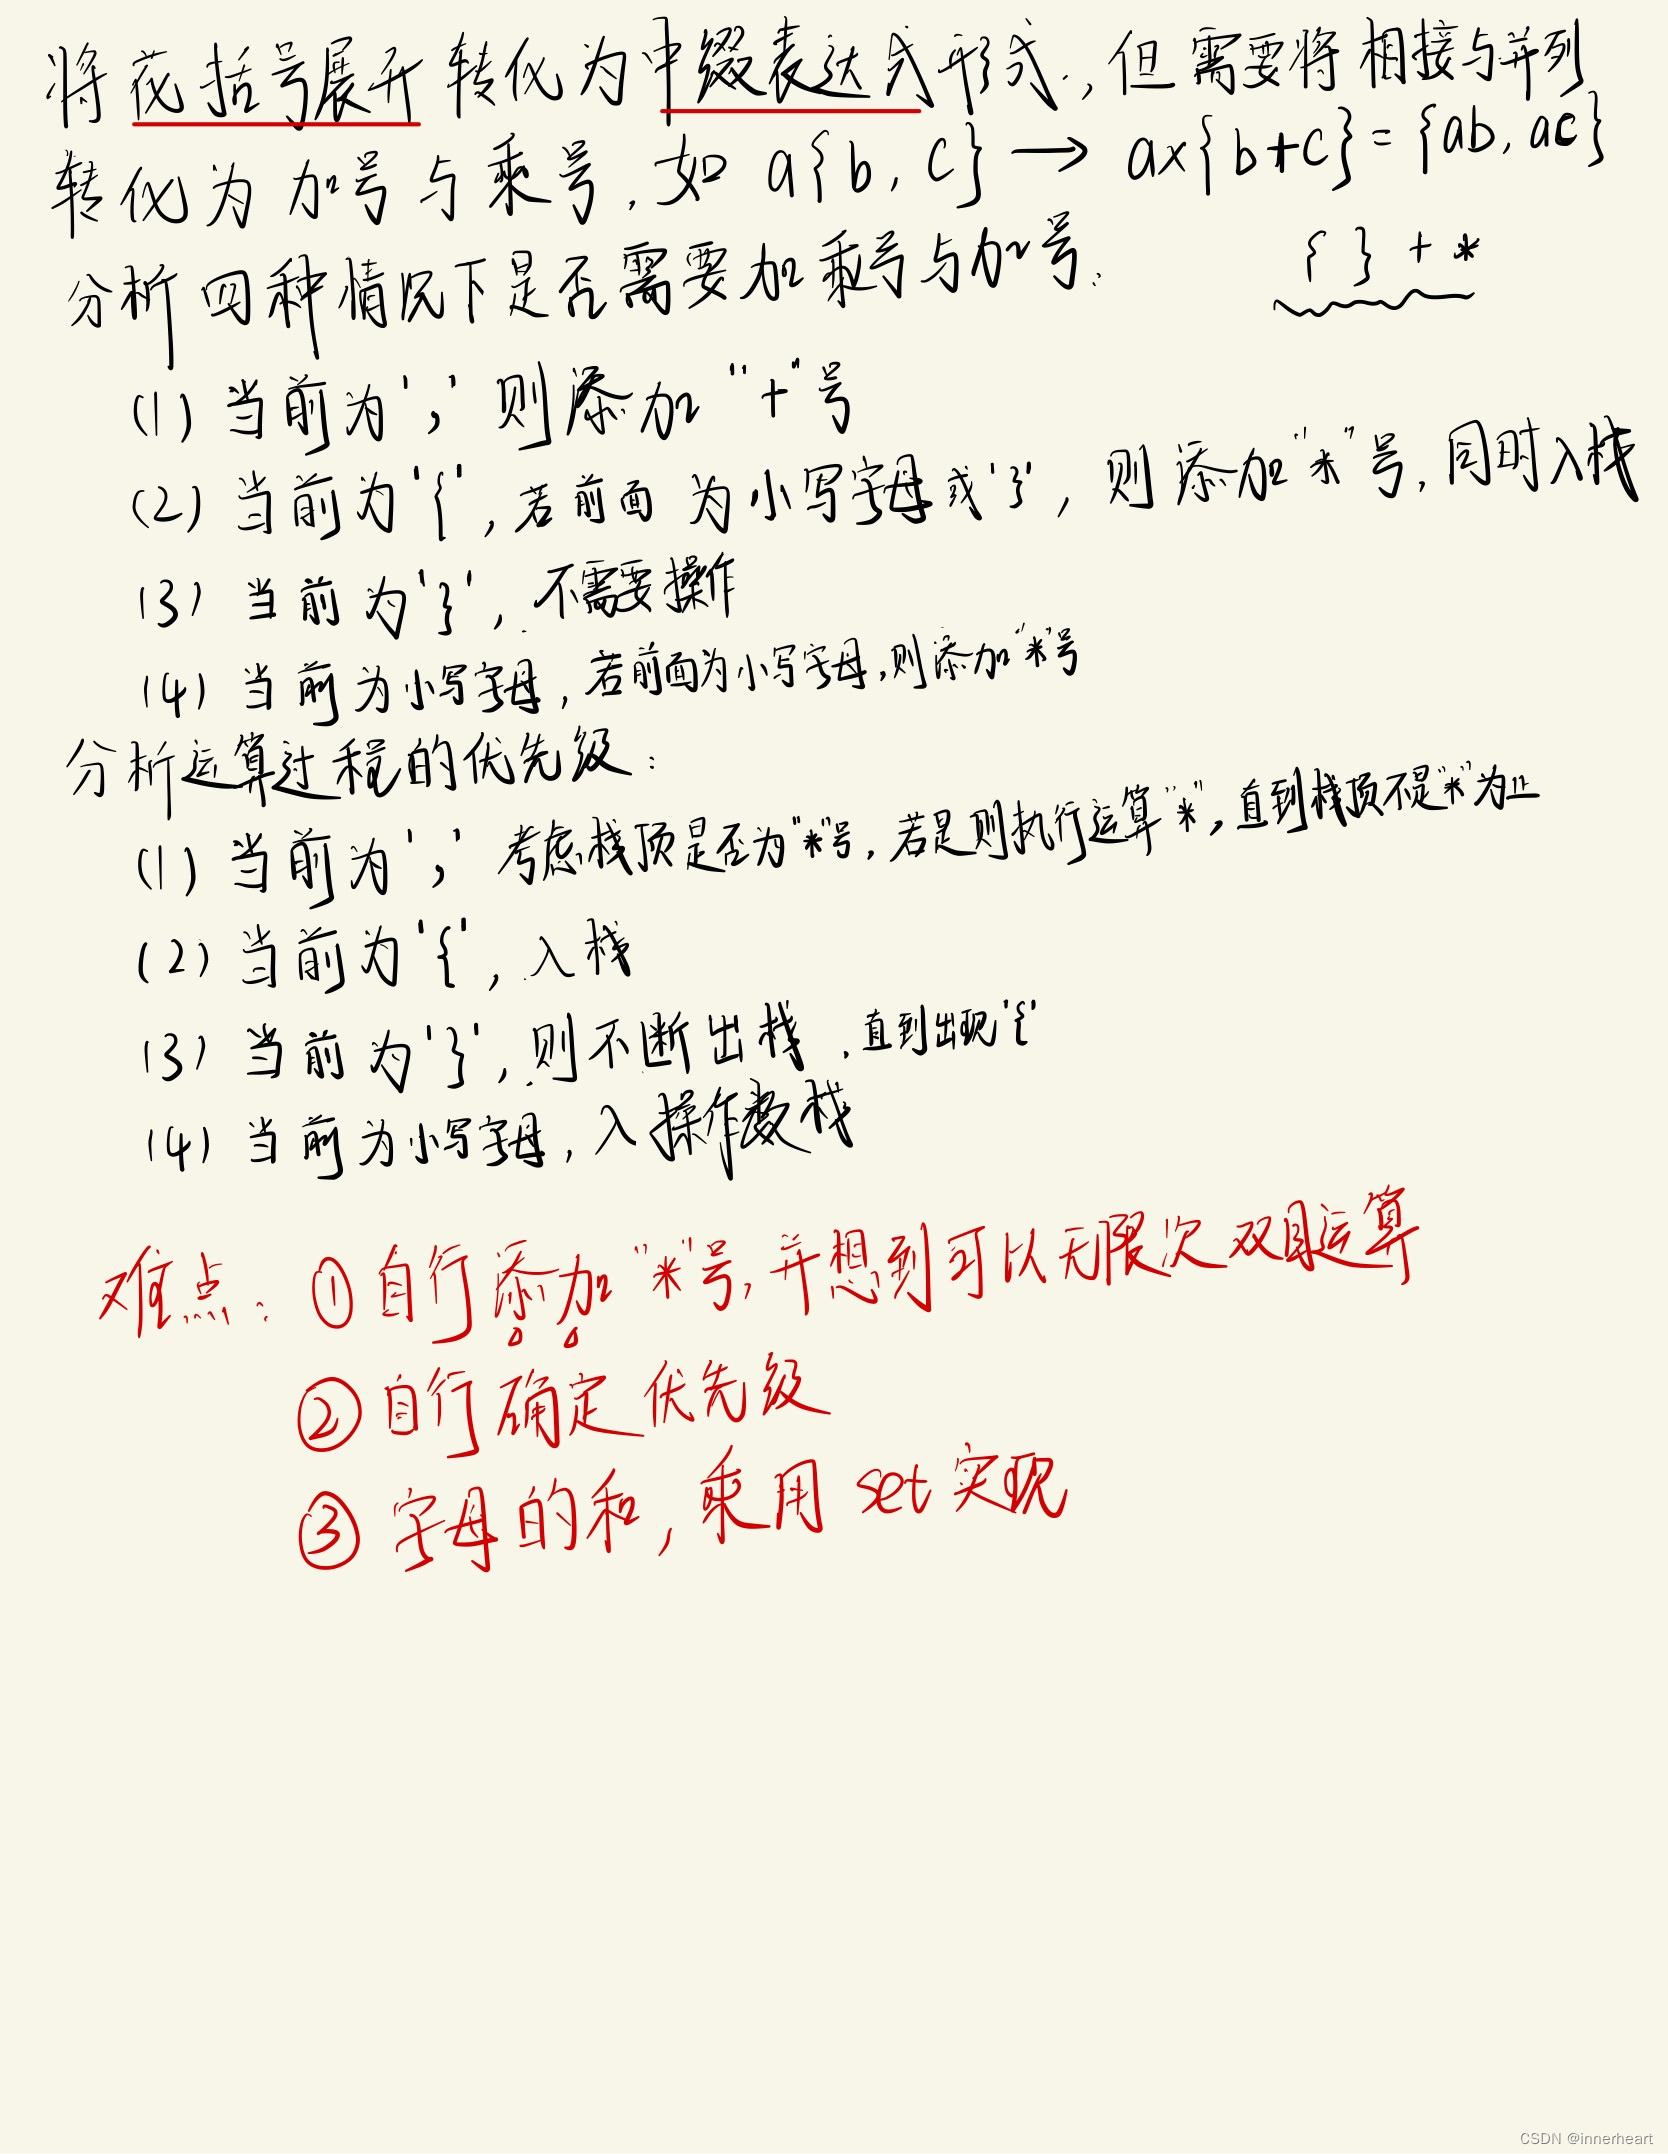 将花括号展开转化为中缀表达式形式.,但需要将相接与并列
转化为加号与乘号,如 a{b,c}→ a×{b+c}={ab,ac}
分析四种情况下是否需要加乘号与加号:
{ } + *
(1) 当前为',' 则添加"+"号
(2) 当前为'{',若前面为小写字母或'}',则添加"*"号,同时入栈
(3) 当前为'}',不需要操作
(4) 当前为小写字母,若前面为小写字母,则添加"*"号
分析运算过程的优先级:
(1) 当前为',' 考虑栈顶是否为"*"号,若是则执行运算"*",直到栈顶不是"*"为止
(2) 当前为'{',入栈
(3) 当前为'}',则不断出栈,直到出现'{'
(4) 当前为小写字母,入操作数栈
难点:①自行添加"*"号,并想到可以无限次双目运算
②自行确定优先级
③字母的和,乘用set实现
CSDN @innerheart